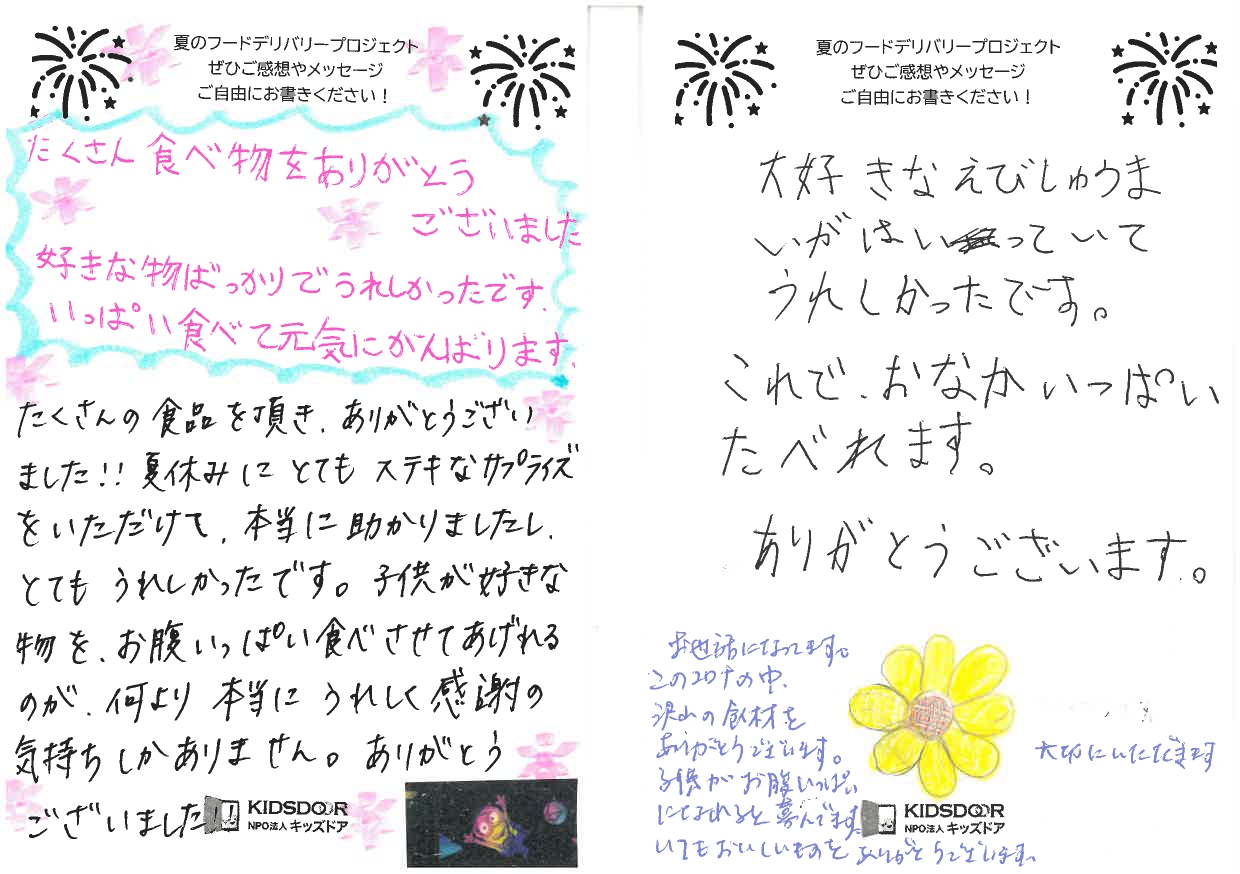 夏のフードデリバリープロジェクト
ぜひご感想やメッセージ
ご自由にお書きください！
たくさん食べ物をありがとう
ございました
好きな物ばっかりでうれしかったです.
いっぱい食べて元気にがんばります.
たくさんの食品を頂き、ありがとうござい
ました!! 夏休みにとてもステキなサプライズ
をいただけて、本当に助かりましたし、
とてもうれしかったです。子供が好きな
物を、お腹いっぱい食べさせてあげれる
のが、何より本当にうれしく感謝の
気持ちしかありません。ありがとう
ございました!
KIDSDOOR
NPO法人 キッズドア
夏のフードデリバリープロジェクト
ぜひご感想やメッセージ
ご自由にお書きください！
大好きなえびしゅうま
いがはいっていて
うれしかったです。
これで、おなかいっぱい
たべれます。
ありがとうございます。
お世話になってます。
このコロナの中、
沢山の食材を
ありがとうございます。
子供がお腹いっぱい
になれると喜んでます。
いつもおいしいものをありがとうございます。
大切にいただきます
KIDSDOOR
NPO法人 キッズドア